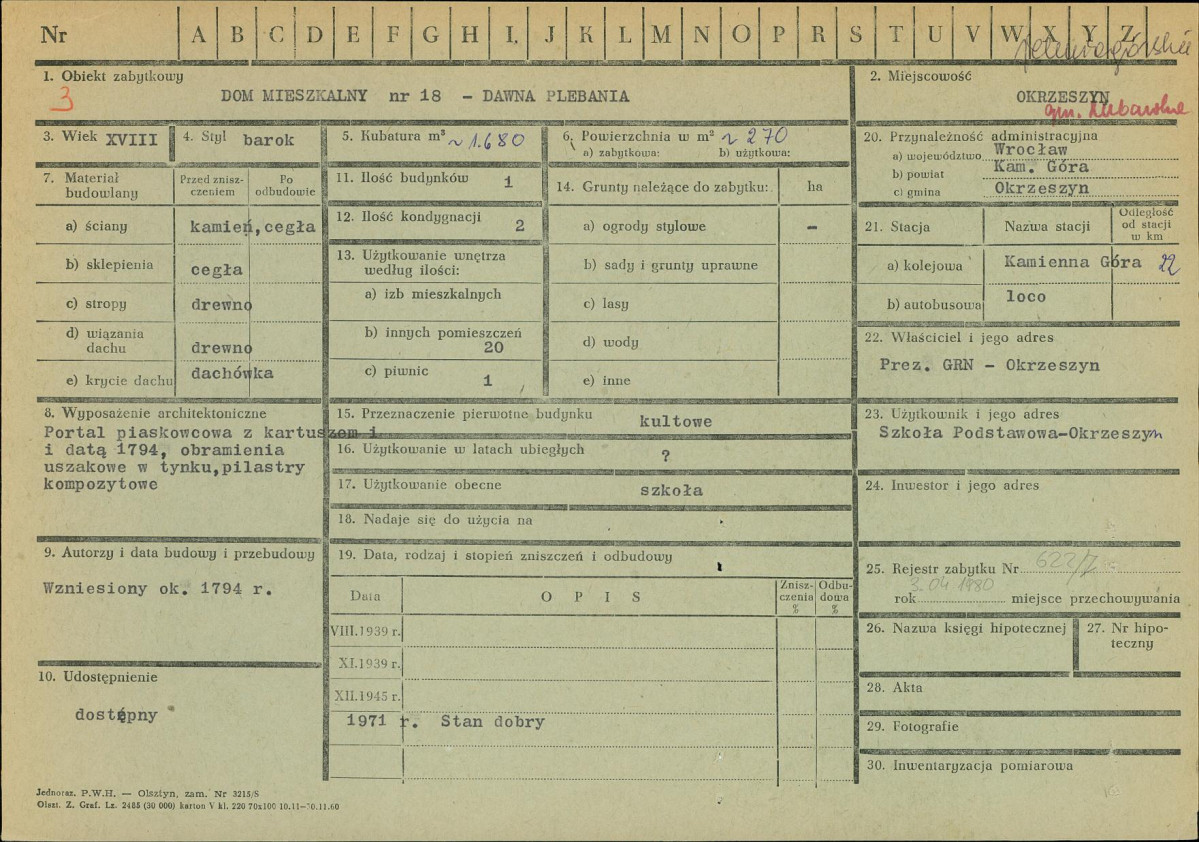 Nr A B C D E F G H I, J K L M N O P R S T U V W X Y Z
jeleniogórskie
1. Obiekt zabytkowy
3
DOM MIESZKALNY nr 18 - DAWNA PLEBANIA
2. Miejscowość
OKRZESZYN
gm. Lubawka
3. Wiek XVIII
4. Styl barok
5. Kubatura m³ ~ 1.680
6. Powierzchnia w m² ~ 270
a) zabytkowa: b) użytkowa:
20. Przynależność administracyjna
a) województwo Wrocław
b) powiat Kam. Góra
c) gmina Okrzeszyn
7. Materiał budowlany
Przed zniszczeniem
Po odbudowie
a) ściany kamień, cegła
b) sklepienia cegła
c) stropy drewno
d) wiązania dachu drewno
e) krycie dachu dachówka
11. Ilość budynków 1
12. Ilość kondygnacji 2
13. Użytkowanie wnętrza
według ilości:
a) izb mieszkalnych
b) innych pomieszczeń
20
c) piwnic 1
14. Grunty należące do zabytku: ha
a) ogrody stylowe -
b) sady i grunty uprawne
c) lasy
d) wody
e) inne
21. Stacja Nazwa stacji Odległość od stacji w km
a) kolejowa Kamienna Góra 22
b) autobusowa loco
22. Właściciel i jego adres
Prez. GRN - Okrzeszyn
8. Wyposażenie architektoniczne
Portal piaskowcowa z kartuszem i
i datą 1794, obramienia
uszakowe w tynku,pilastry
kompozytowe
15. Przeznaczenie pierwotne budynku kultowe
16. Użytkowanie w latach ubiegłych ?
17. Użytkowanie obecne szkoła
18. Nadaje się do użycia na
23. Użytkownik i jego adres
Szkoła Podstawowa-Okrzeszyn
24. Inwestor i jego adres
9. Autorzy i data budowy i przebudowy
Wzniesiony ok. 1794 r.
10. Udostępnienie
dostępny
19. Data, rodzaj i stopień zniszczeń i odbudowy
Data O P I S Zniszczenia % Odbudowa %
VIII.1939 r.
XI.1939 r.
XII.1945 r.
1971 r. Stan dobry
25. Rejestr zabytku Nr 622/J
3.04 1980
rok miejsce przechowywania
26. Nazwa księgi hipotecznej
27. Nr hipoteczny
28. Akta
29. Fotografie
30. Inwentaryzacja pomiarowa
Jednoraz. P.W.H. — Olsztyn, zam. Nr 3215/S
Olszt. Z. Graf. Lz. 2485 (30 000) karton V kl. 220 70x100 10.11—30.11.60